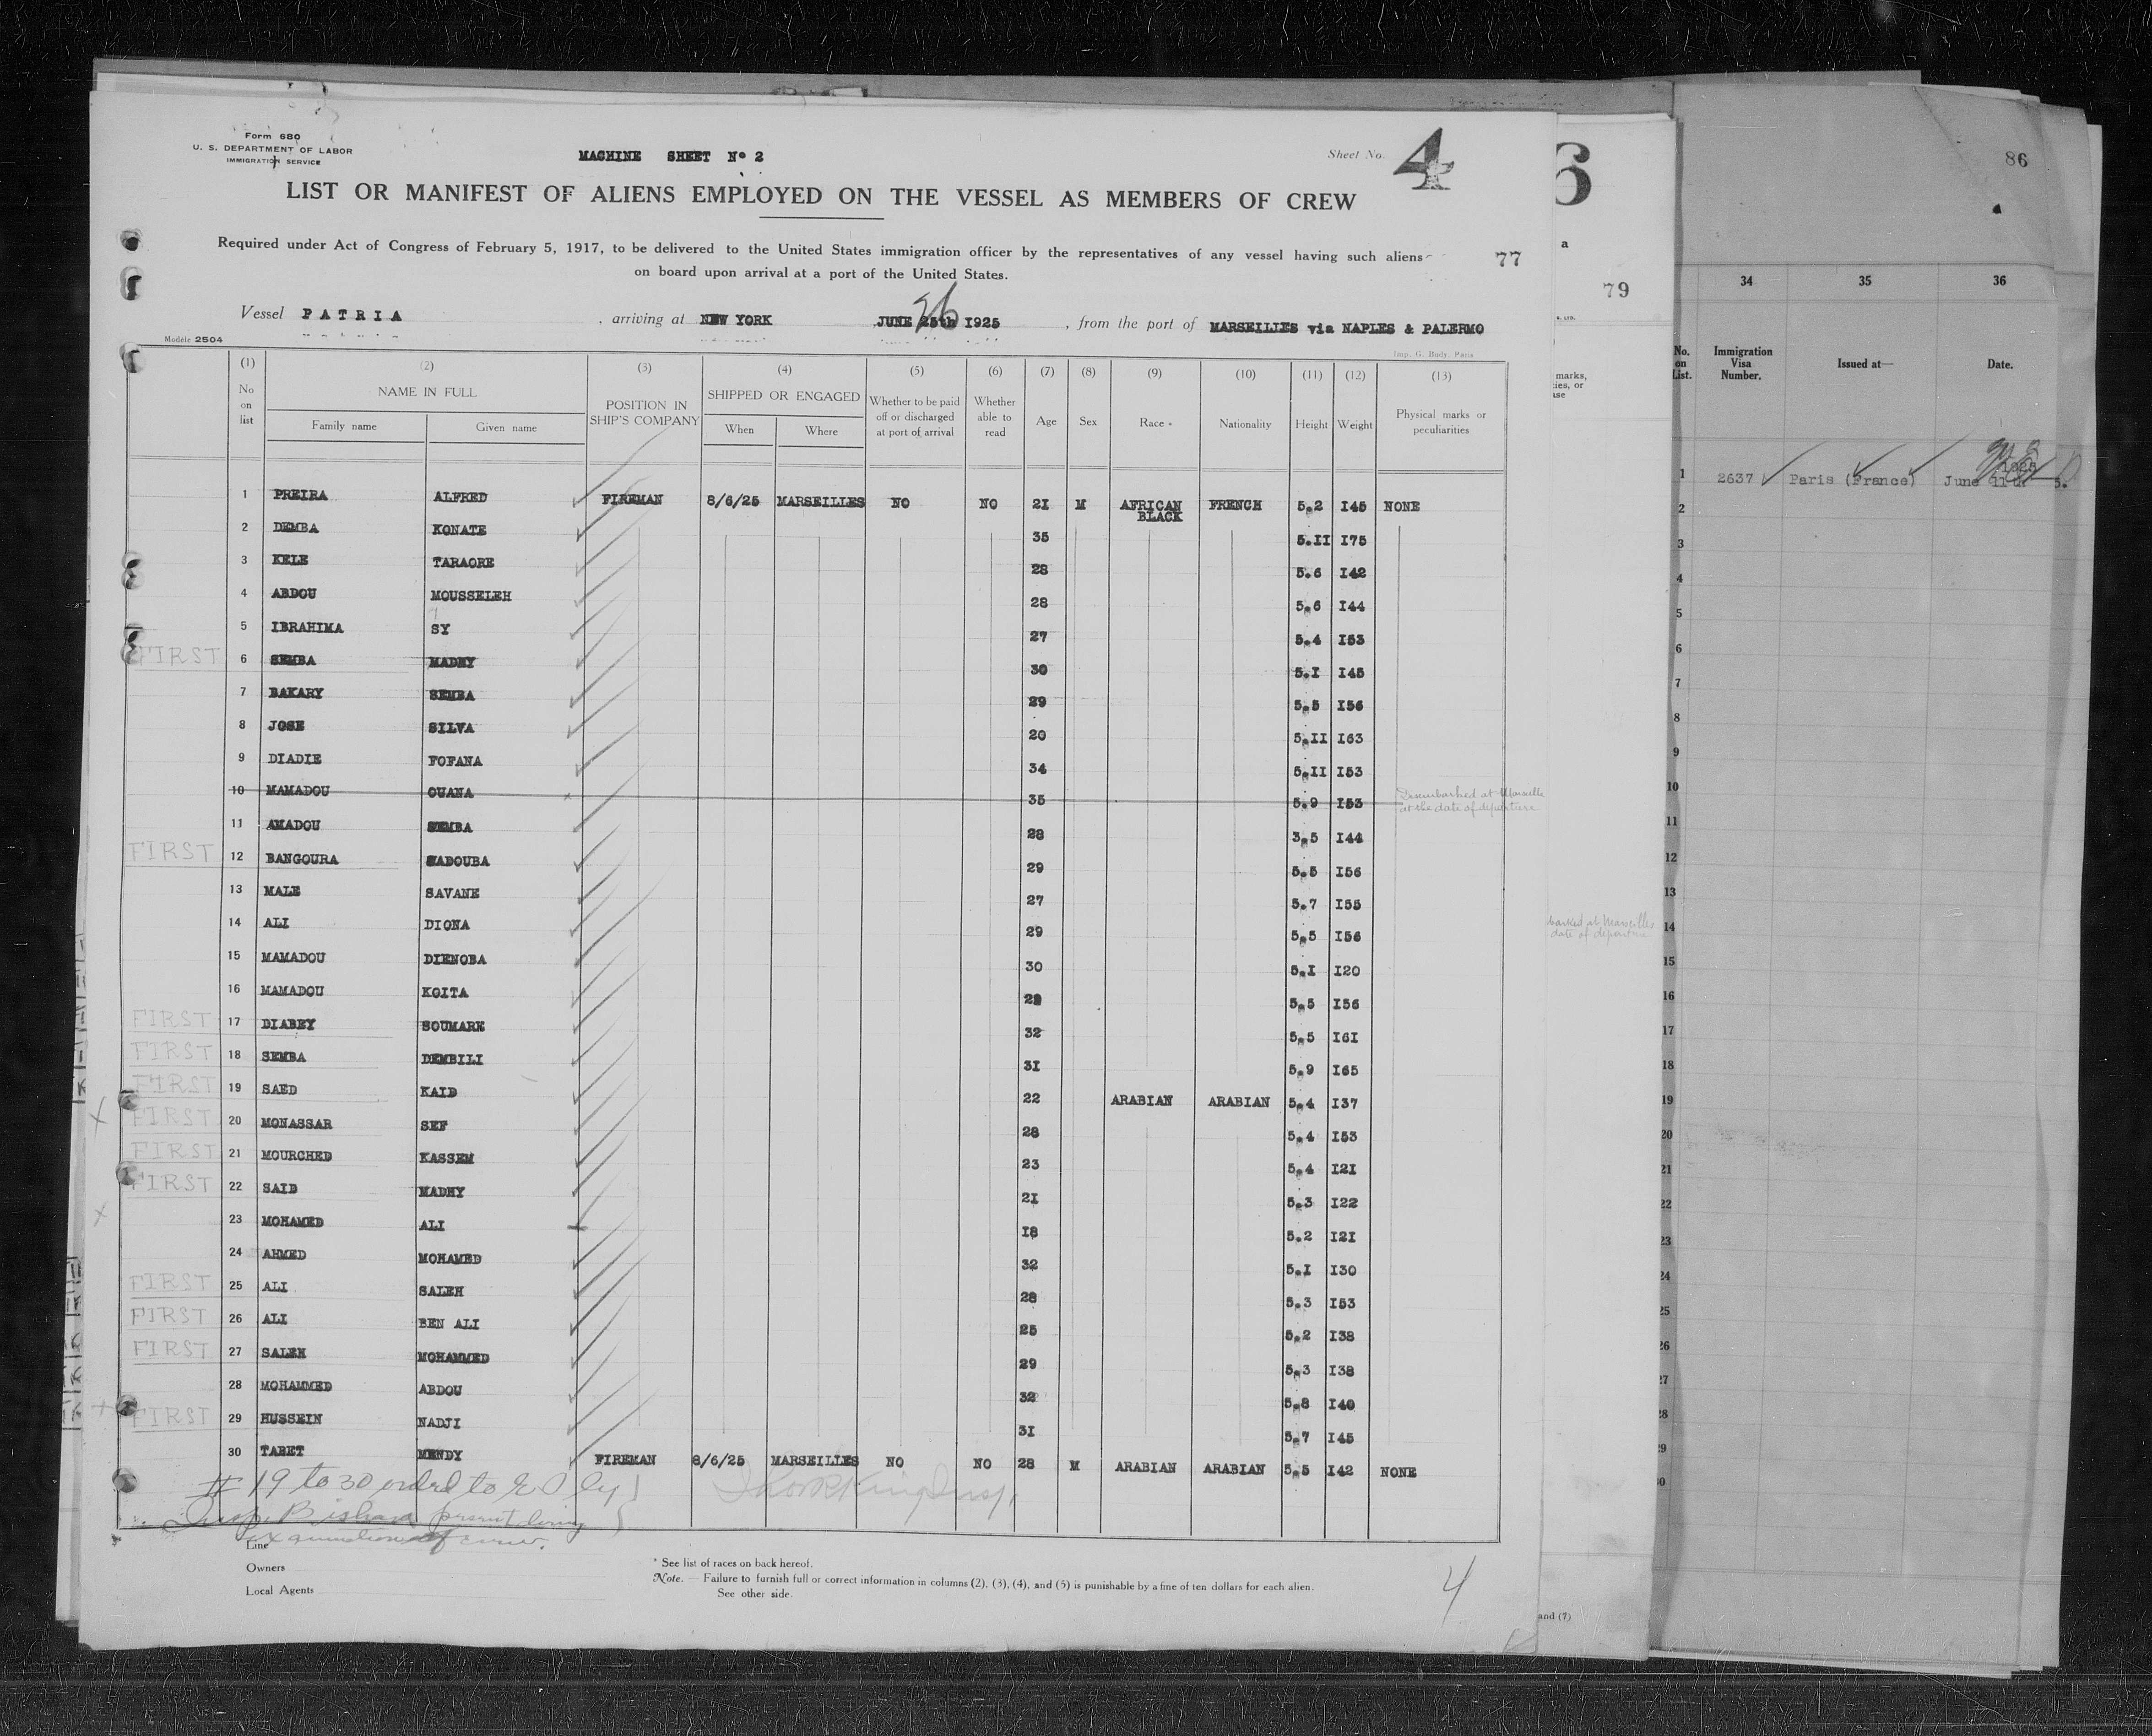 Form 680
U. S. DEPARTMENT OF LABOR
IMMIGRATION SERVICE
MACHINE SHEET No 2
Sheet No. 4
LIST OR MANIFEST OF ALIENS EMPLOYED ON THE VESSEL AS MEMBERS OF CREW
Required under Act of Congress of February 5, 1917, to be delivered to the United States immigration officer by the representatives of any vessel having such aliens
on board upon arrival at a port of the United States.
77
Vessel PATRIA , arriving at NEW YORK JUNE 25th 26 I925 , from the port of MARSEILLES via NAPLES & PALERMO
Modèle 2504
Imp. G. Body. Paris
(1) (2) (3) (4) (5) (6) (7) (8) (9) (10) (11) (12) (13)
No on list NAME IN FULL Family name Given name POSITION IN SHIP'S COMPANY SHIPPED OR ENGAGED When Where Whether to be paid off or discharged at port of arrival Whether able to read Age Sex Race * Nationality Height Weight Physical marks or peculiarities
1 PREIRA ALFRED FIREMAN 8/6/25 MARSEILLES NO NO 2I M AFRICAN BLACK FRENCH 5.2 I45 NONE
2 DEMBA KONATE 35 5.II I75
3 KELE TARAORE 28 5.6 I42
4 ABDOU MOUSSELEH 28 5.6 I44
5 IBRAHIMA SY 27 5.4 I53
FIRST 6 SEMBA MADHY 30 5.I I45
7 BAKARY SEMBA 29 5.5 I56
8 JOSE SILVA 20 5.II I63
9 DIADIE FOFANA 34 5.II I53
10 MAMADOU OUANA 35 5.9 I53 Disembarked at Marseille
at the date of departure
11 AMADOU SEMBA 28 3.5 I44
FIRST 12 BANGOURA SADOUBA 29 5.5 I56
13 MALE SAVANE 27 5.7 I55
14 ALI DIONA 29 5.5 I56
15 MAMADOU DIENOBA 30 5.I I20
16 MAMADOU KOITA 29 5.5 I56
FIRST 17 DIABEY SOUMARE 32 5.5 I6I
FIRST 18 SEMBA DEMBILI 3I 5.9 I65
FIRST 19 SAED KAID 22 ARABIAN ARABIAN 5.4 I37
FIRST 20 MONASSAR SEF 28 5.4 I53
FIRST 21 MOURCHED KASSEM 23 5.4 I2I
FIRST 22 SAID MADHY 2I 5.3 I22
23 MOHAMED ALI I8 5.2 I2I
24 AHMED MOHAMED 32 5.I I30
FIRST 25 ALI SALEH 28 5.3 I53
FIRST 26 ALI BEN ALI 25 5.2 I38
FIRST 27 SALEH MOHAMMED 29 5.3 I38
28 MOHAMMED ABDOU 32 5.8 I40
FIRST 29 HUSSEIN NADJI 3I 5.7 I45
30 TABET MENDY FIREMAN 8/6/25 MARSEILLES NO NO 28 M ARABIAN ARABIAN 5.5 I42 NONE
# 19 to 30 ordrd to by
Insp. present during
examination of crew.
Line
Owners
Local Agents
* See list of races on back hereof.
Note. — Failure to furnish full or correct information in columns (2), (3), (4), and (5) is punishable by a fine of ten dollars for each alien.
See other side.
4
6
a
79
marks,
ies, or
use
barked at Marseilles
date of departure
and (7)
86
34 35 36
No. on List. Immigration Visa Number. Issued at— Date.
1 2637 Paris (France) June 11th 1925
2
3
4
5
6
7
8
9
10
11
12
13
14
15
16
17
18
19
20
21
22
23
24
25
26
27
28
29
30